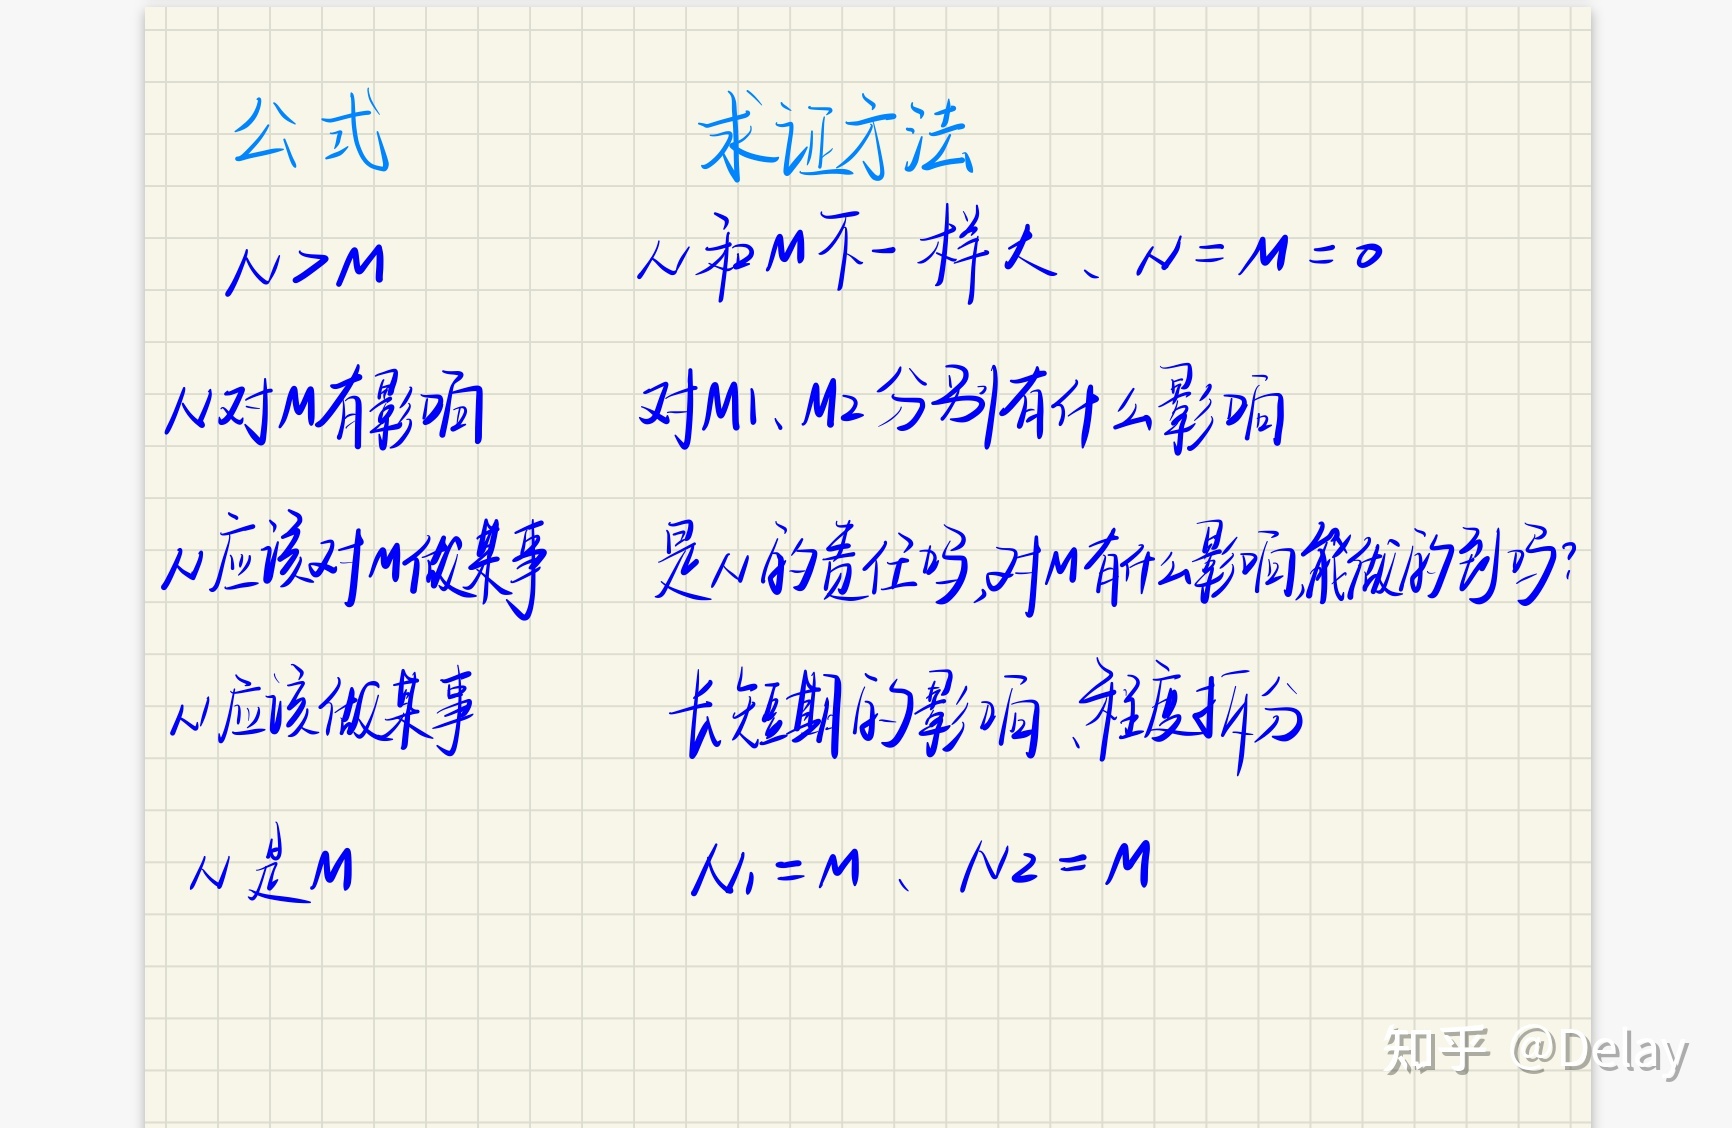 公式 求证方法
N>M N和M不一样大、N=M=0
N对M有影响 对M1、M2分别有什么影响
N应该对M做某事 是N的责任吗,对M有什么影响,能做的到吗?
N应该做某事 长短期的影响、程度拆分
N是M N1=M、N2=M
知乎 @Delay